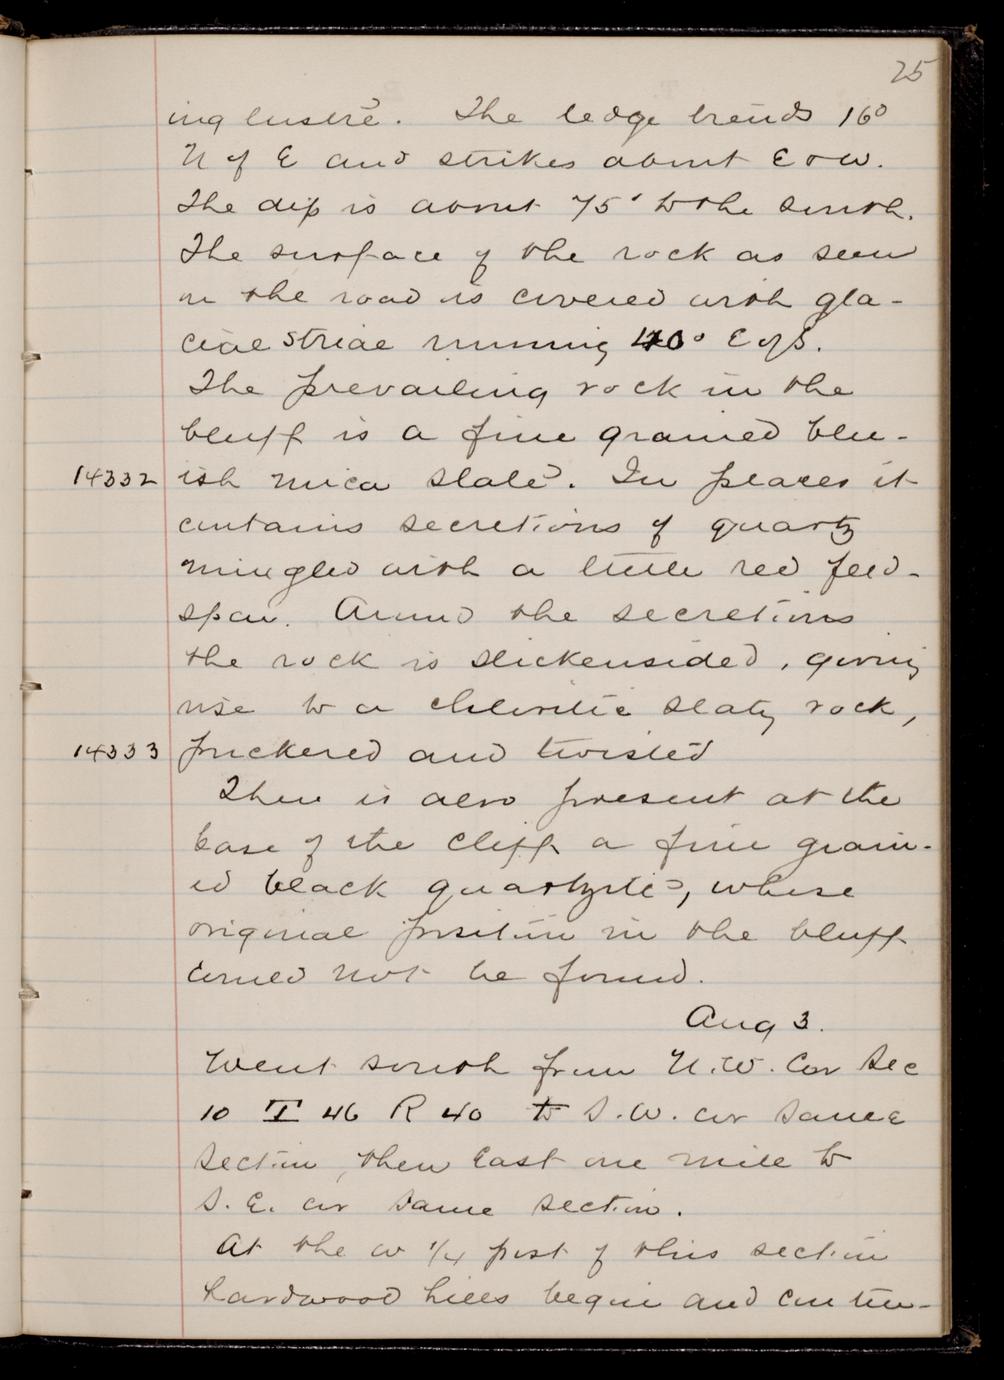 25
ing lustre. The ledge trends 16°
N of E and strikes about E & W.
The dip is about 75° to the south.
The surface of the rock as seen
in the road is covered with gla-
cial striae running 40° E of S.
The prevailing rock in the
bluff is a fine grained blu-
14332 ish mica slate. In places it
contains secretions of quartz
mingled with a little red feld-
spar. Around the secretions
the rock is slickensided, giving
rise to a chloritic slaty rock,
14333 puckered and twisted
There is also present at the
base of the cliff a fine grain-
ed black quartzite, whose
original position in the bluff
could not be found.
Aug 3.
Went south from N.W. Cor Sec
10 T 46 R 40 to S.W. cor same
section, then East one mile to
S.E. cor same section.
At the W 1/4 post of this section
hardwood hills begin and contin-